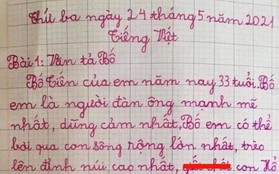 Thứ ba ngày 24 tháng 5 năm 2021
Tiếng Việt
Bài 1: Văn tả Bố
Bố Tiến của em năm nay 33 tuổi. Bố
em là người đàn ông mạnh mẽ
nhất, dũng cảm nhất, Bố em có thể
bơi qua con sông rộng lớn nhất, trèo
lên đỉnh núi cao nhất, con Hổ